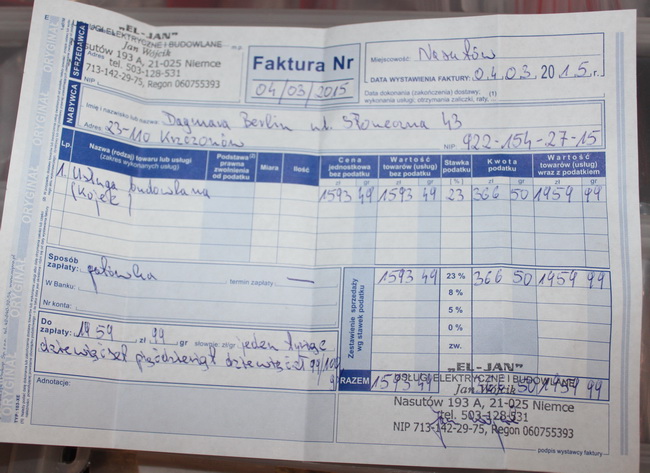 ORYGINAŁ ORYGINAŁ
SPRZEDAWCA
„EL-JAN"
USŁUGI ELEKTRYCZNE I BUDOWLANE
Jan Wójcik
Adres
Nasutów 193 A, 21-025 Niemce
tel. 503-128-531
NIP 713-142-29-75, Regon 060755393
Faktura Nr
04/03/2015
Miejscowość: Nasutów
DATA WYSTAWIENIA FAKTURY: 04.03.2015r.
Data dokonania (zakończenia) dostawy,
wykonania usługi, otrzymania zaliczki, raty,
NABYWCA
Imię i nazwisko lub nazwa Dagmara Berlin ul. Słoneczna 43
Adres 23-110 Krzczonów NIP 922-154-27-15
Lp. Nazwa (rodzaj) towaru lub usługi (zakres wykonanych usług) Podstawa prawna zwolnienia od podatku Miara Ilość Cena jednostkowa bez podatku Wartość towarów (usług) bez podatku Stawka podatku Kwota podatku Wartość towarów (usług) wraz z podatkiem
zł gr zł gr [%] zł gr zł gr
1. Usługa budowlana 1593 49 1593 49 23 366 50 1959 99
(Kojec)
Sposób zapłaty: gotówka termin zapłaty —
W Banku:
Nr konta:
Zestawienie sprzedaży wg stawek podatku
1593 49 23 % 366 50 1959 99
8 %
5 %
0 %
zw.
Do zapłaty: 1959 zł 99 gr słownie: zł/gr jeden tysiąc
dziewięćset pięćdziesiąt dziewięć zł 99/100
gr
RAZEM 1593 49 366 50 1959 99
Adnotacje:
„EL-JAN"
USŁUGI ELEKTRYCZNE I BUDOWLANE
Jan Wójcik
Nasutów 193 A, 21-025 Niemce
tel. 503-128-531
NIP 713-142-29-75, Regon 060755393
podpis wystawcy faktury